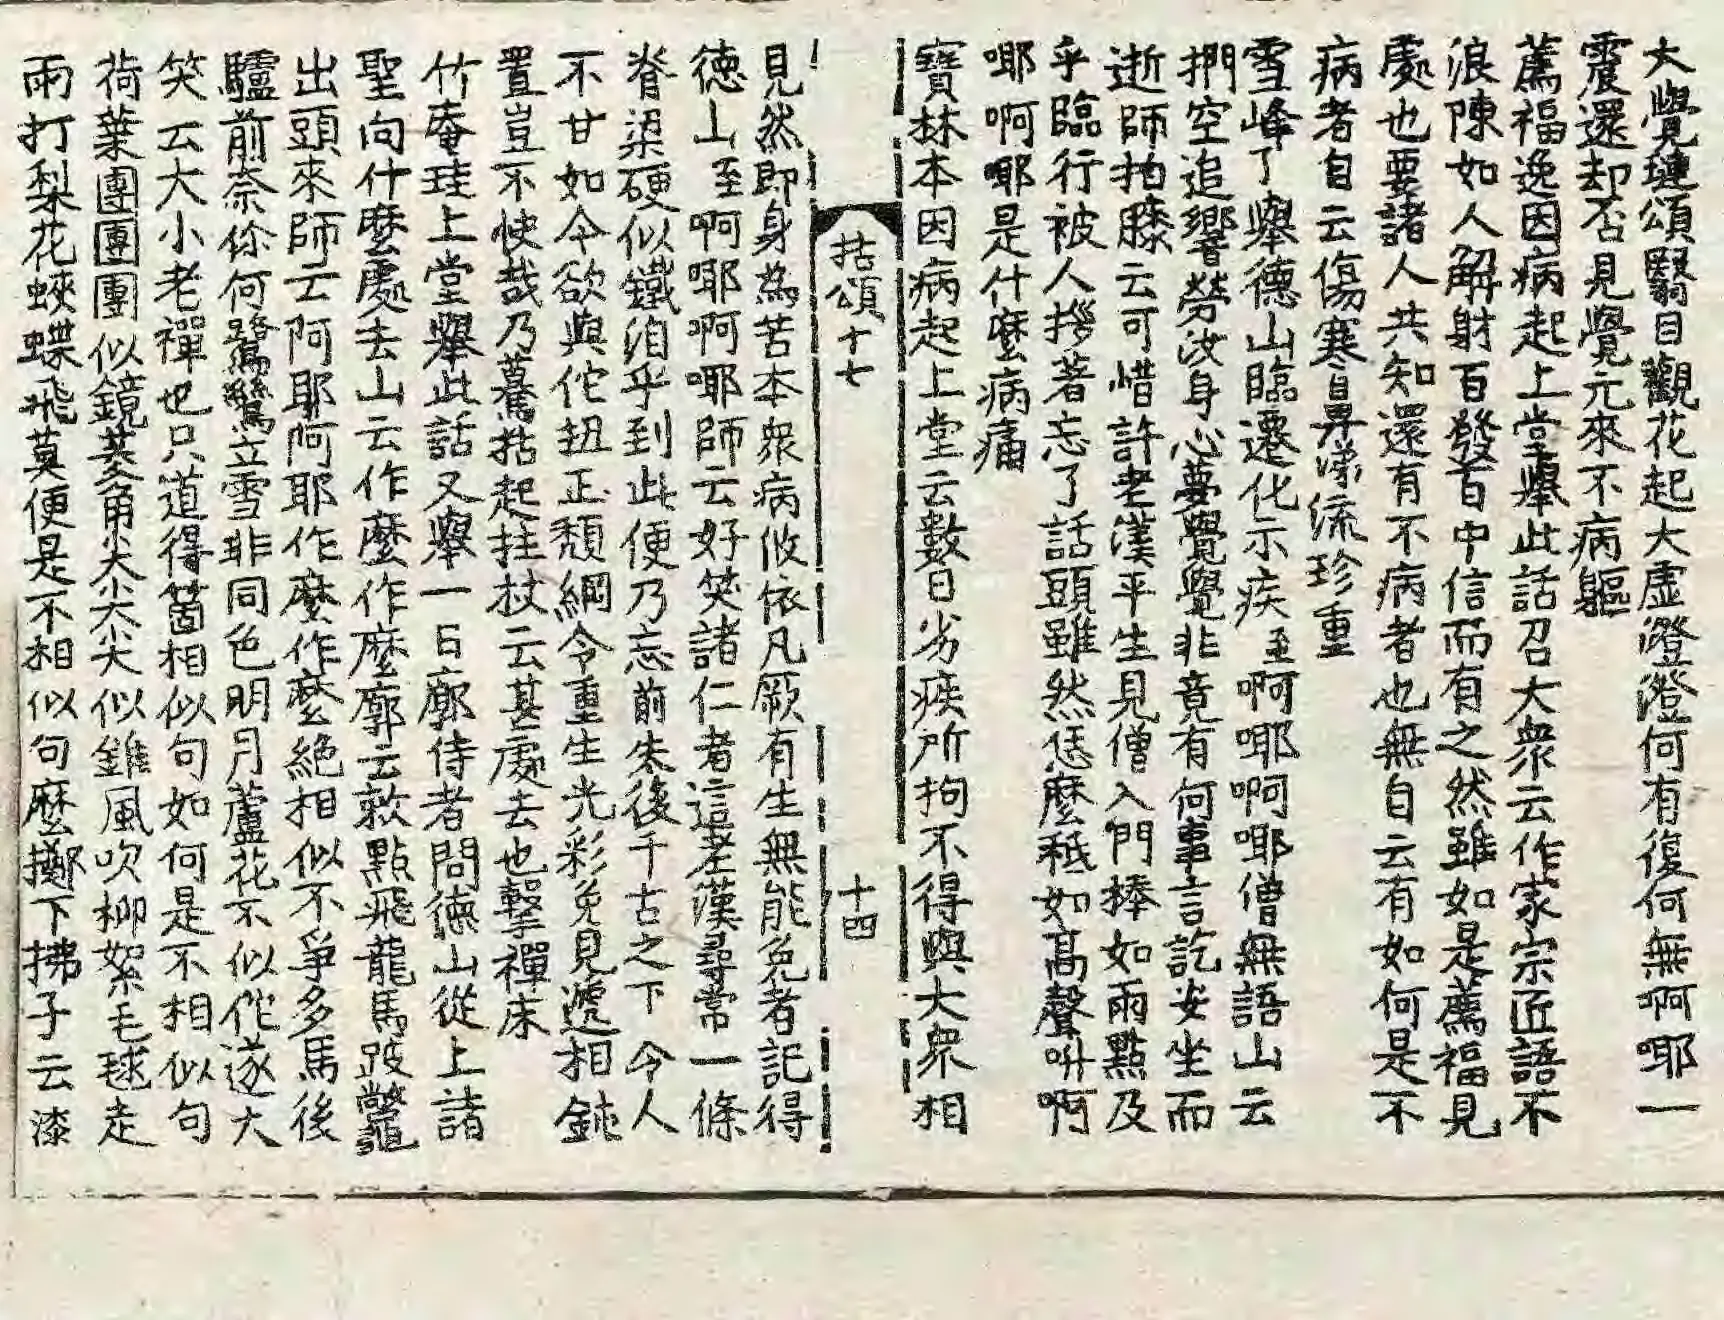 大覺璉頌翳目觀花起大虛澄澄何有復何無啊㖿一
震還却否見覺元來不病軀
薦福逸因病起上堂擧此話召大衆云作家宗匠語不
浪陳如人解射百發百中信而有之然雖如是薦福見
處也要諸人共知還有不病者也無自云有如何是不
病者自云傷寒鼻流珍重
雪峰了擧德山臨遷化示疾至啊㖿啊㖿僧無語山云
捫空追響勞汝身心夢覺覺非竟有何事言訖安坐而
逝師拍膝云可惜許老漢平生見僧入門捧如雨點及
乎臨行被人拶著忘了話頭雖然恁麽秪如高聲呌啊
㖿啊㖿是什麽病痛
寶林本因病起上堂云數日劣疾所拘不得與大衆相
拈頌十七
十四
見然即身爲苦本衆病攸依凡厥有生無能免者記得
德山至啊㖿啊㖿師云好笑諸仁者這老漢尋常一條
脊梁硬似鐵洎乎到此便乃忘前失後千古之下令人
不甘如今欲與佗扭正頹綱令重生光彩免見遞相鈍
置豈不快哉乃驀拈起拄杖云甚處去也擊禪床
竹庵珪上堂擧此話又擧一日廓侍者問德山從上諸
聖向什麽處去山云作麽作麽廓云敕點飛龍馬跛鼈
出頭來師云阿耶阿耶作麽作麽絶相似不爭多馬後
驢前奈你何鷺鷥立雪非同色明月蘆花不似佗遂大
笑云大小老禪也只道得箇相似句如何是不相似句
荷葉團團團似鏡菱角尖尖尖似錐風吹柳絮毛毬走
雨打梨花蛺蝶飛莫便是不相似句麽擲下拂子云漆